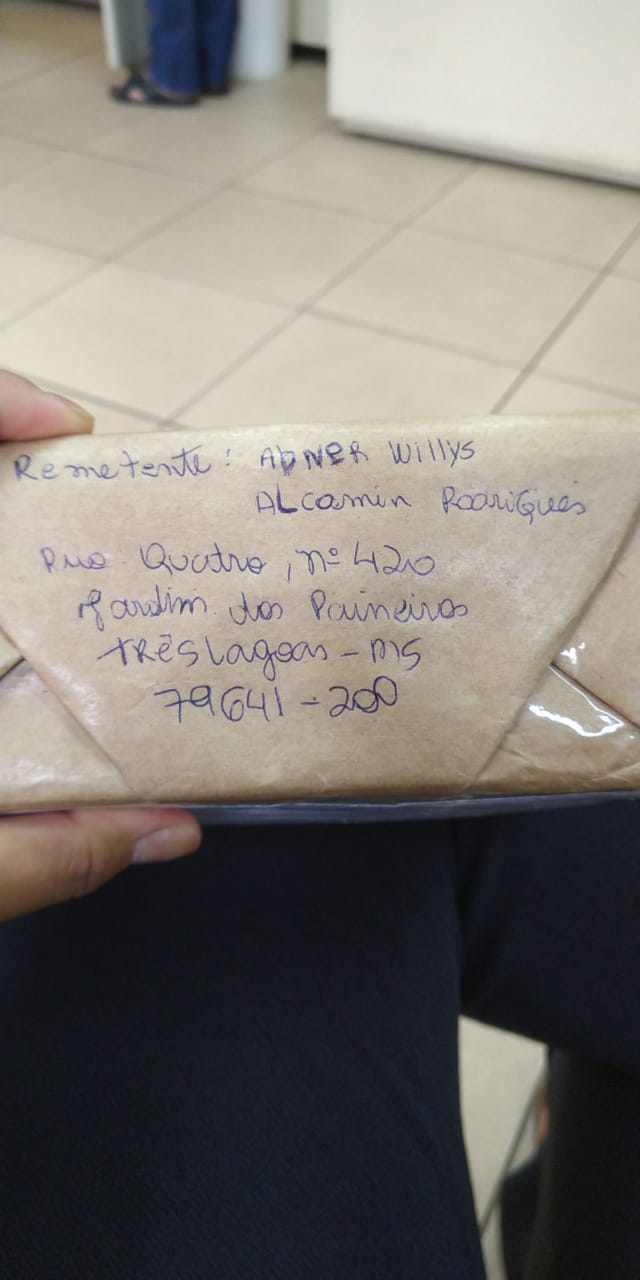 Remetente: Abner Willys
Alcamin Rodrigues
Rua Quatro, nº 420
Jardim das Paineiras
Três Lagoas - MS
79641-200